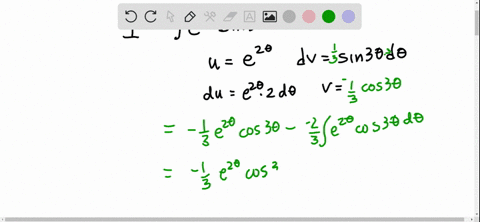 u = e^{2θ} dv = ⅓ sin3θ dθ
du = e^{2θ}·2 dθ v = -⅓ cos3θ
= -⅓ e^{2θ} cos3θ - -⅔ ∫ e^{2θ} cos3θ dθ
= -⅓ e^{2θ} cos³